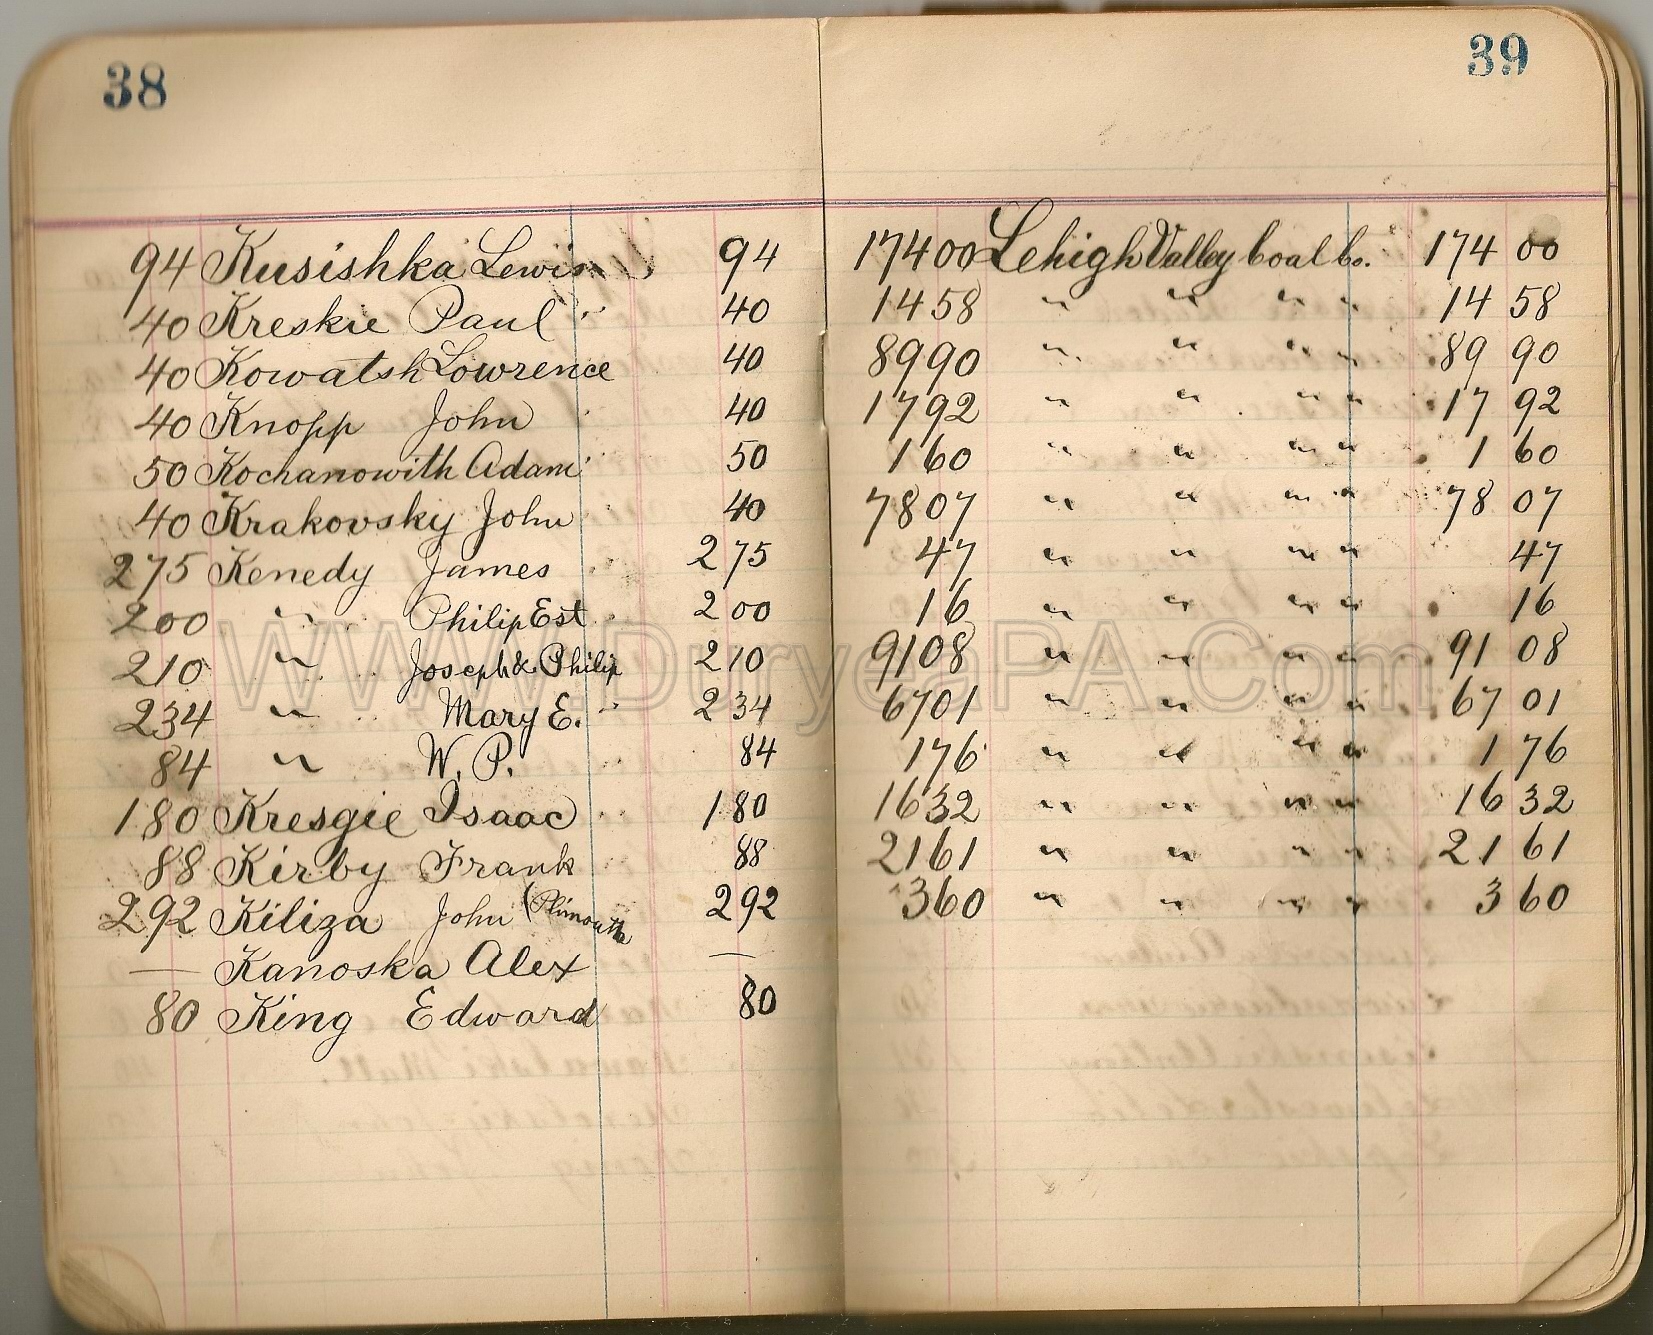 38
94 Kusishka Lewis 94
40 Kreskie Paul 40
40 Kowatsh Lowrence 40
40 Knopp John 40
50 Kochanowith Adam 50
40 Krakovsky John 40
275 Kenedy James 275
200 " Philip Est 200
210 " Joseph & Philip 210
234 " Mary E. 234
84 " W. P. 84
180 Kresgie Isaac 180
88 Kirby Frank 88
292 Kiliza John (Plimouth 292
— Kanoska Alex —
80 King Edward 80
39
174 00 Lehigh Valley Coal Co. 174 00
14 58 " " " " 14 58
89 90 " " " " 89 90
17 92 " " " " 17 92
1 60 " " " " 1 60
78 07 " " " " 78 07
47 " " " " 47
16 " " " " 16
91 08 " " " " 91 08
67 01 " " " " 67 01
1 76 " " " " 1 76
16 32 " " " " 16 32
21 61 " " " " 21 61
3 60 " " " " 3 60
WWW.DuryeaPA.Com